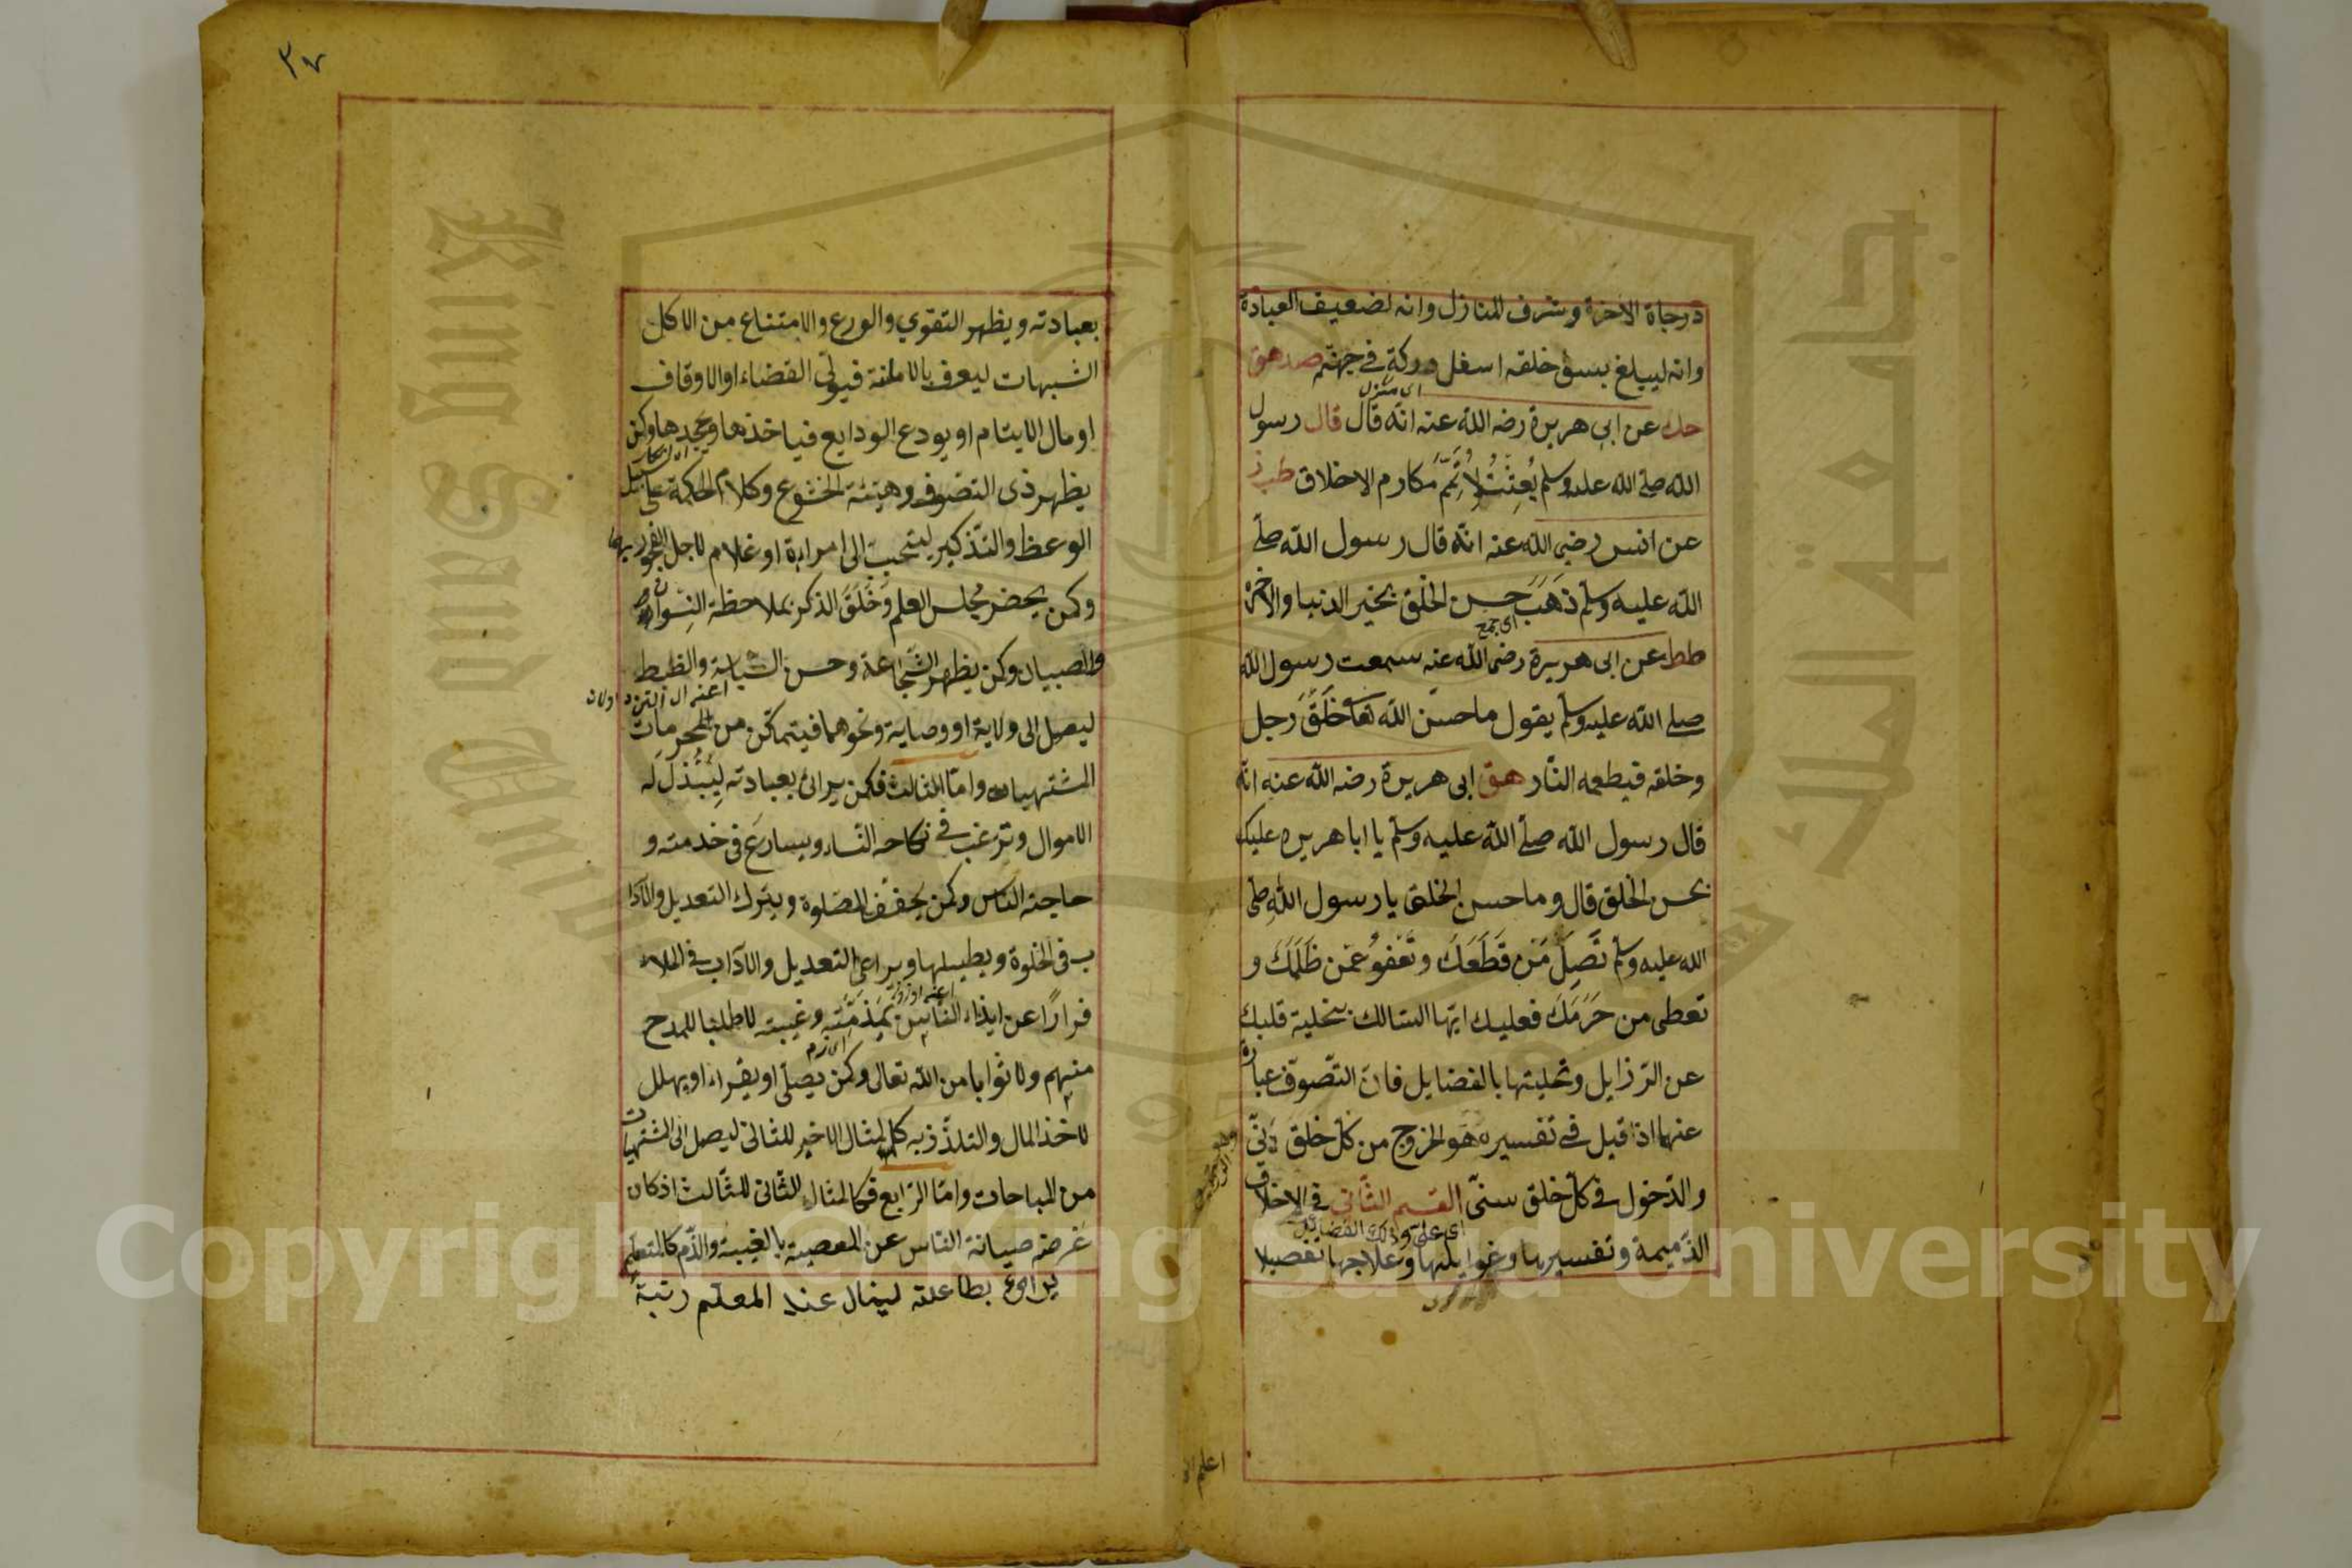 درجاة الاخرة وشرف المنازل وانه لضعيف العبادة
وانه ليبلغ بسؤ خلقه اسفل دركة في جهنم صد هق
اى منزل
حك عن ابى هريرة رضه الله عنه انه قال قال رسول
الله صلے الله عليه وسلم بُعِثْتُ لِأُتَمِّمَ مكارم الاخلاق طب ز
عن انس رضي الله عنه انه قال رسول الله صلے
الله عليه وسلم ذَهَبَ حسن الخلق بخير الدنيا والاخرة
اى جمع
طط عن ابى هريرة رضى الله عنه سمعت رسول الله
صلے الله عليه وسلم يقول ما حسن الله خَلْقَ رجل
وخلقه فيطعمه النار هق ابى هريرة رضه الله عنه انه
قال رسول الله صلے الله عليه وسلم يا ابا هريره عليك
بحسن الخلق قال وما حسن الخلق يا رسول الله صلى
الله عليه وسلم تَصِلَ مَنْ قَطَعَكَ وتَعْفُوَ عَمَّن ظَلَمَكَ و
تعطى من حَرَمَكَ فعليك ايها السالك بتخلية قلبك
عن الرزايل وتحليتها بالفضايل فان التصوف عبارة
عنهما اذا قيل فے تفسيره هو الخروج من كل خلق دنىّ
والدخول فے كل خلق سنىّ القسم الثاني في الاخلاق
الذميمة وتفسيرها وغوايلها وعلاجها تفصيلا
٣٧
بعبادته ويظهر التقوي والورع والامتناع من الاكل
الشبهات ليعرف بالامانة فيولّى القضاء او الاوقاف
او مال الايتام او يودع الودايع فياخذها ويجحدها وكمن
يظهر ذى التصوف وهيئة الخشوع وكلام الحكمة على سبيل
الوعظ والتذكير ليتحبب الى امراءة او غلام لاجل الفجور بها
وكمن يحضر مجلس العلم وخَلَقَ الذكر بملاحظة النسوان
والصبيان وكمن يظهر الشجاعة وحسن السياسة والضبط
ليصل الى ولاية او وصاية ونحوهما فيتمكن من المحرمات
المشتهيات واما الثالث فكمن يرائ بعبادته لِيُبْذَلَ له
الاموال وترغب فے نكاحه النساء ويسارع فى خدمته و
حاجته الناس وكمن يخفف الصلوة ويترك التعديل والآدا
ب فى الخلوة ويطيلها ويراعى التعديل والآداب فے الملاء
فرارًا عن ايذاء الناس بمَذَمَّتِهِ وغيبته لا طلبا للمدح
منهم ولا ثوابا من الله تعالى وكمن يصلّى او يقراء او يهلل
لاخذ المال والتلذّذ به كالمثال الاخير للثانى ليصل الى المشتهيات
من المباحات واما الرابع فكالمثال الثانى للثالث اذ كان
غرضه صيانة الناس عن المعصية بالغيبة والذم كالمتعلم
يرائ بطاعته لينال عند المعلّم رتبة
Copyright © King Saud University
جامعة الملك سعود
King Saud University
1957